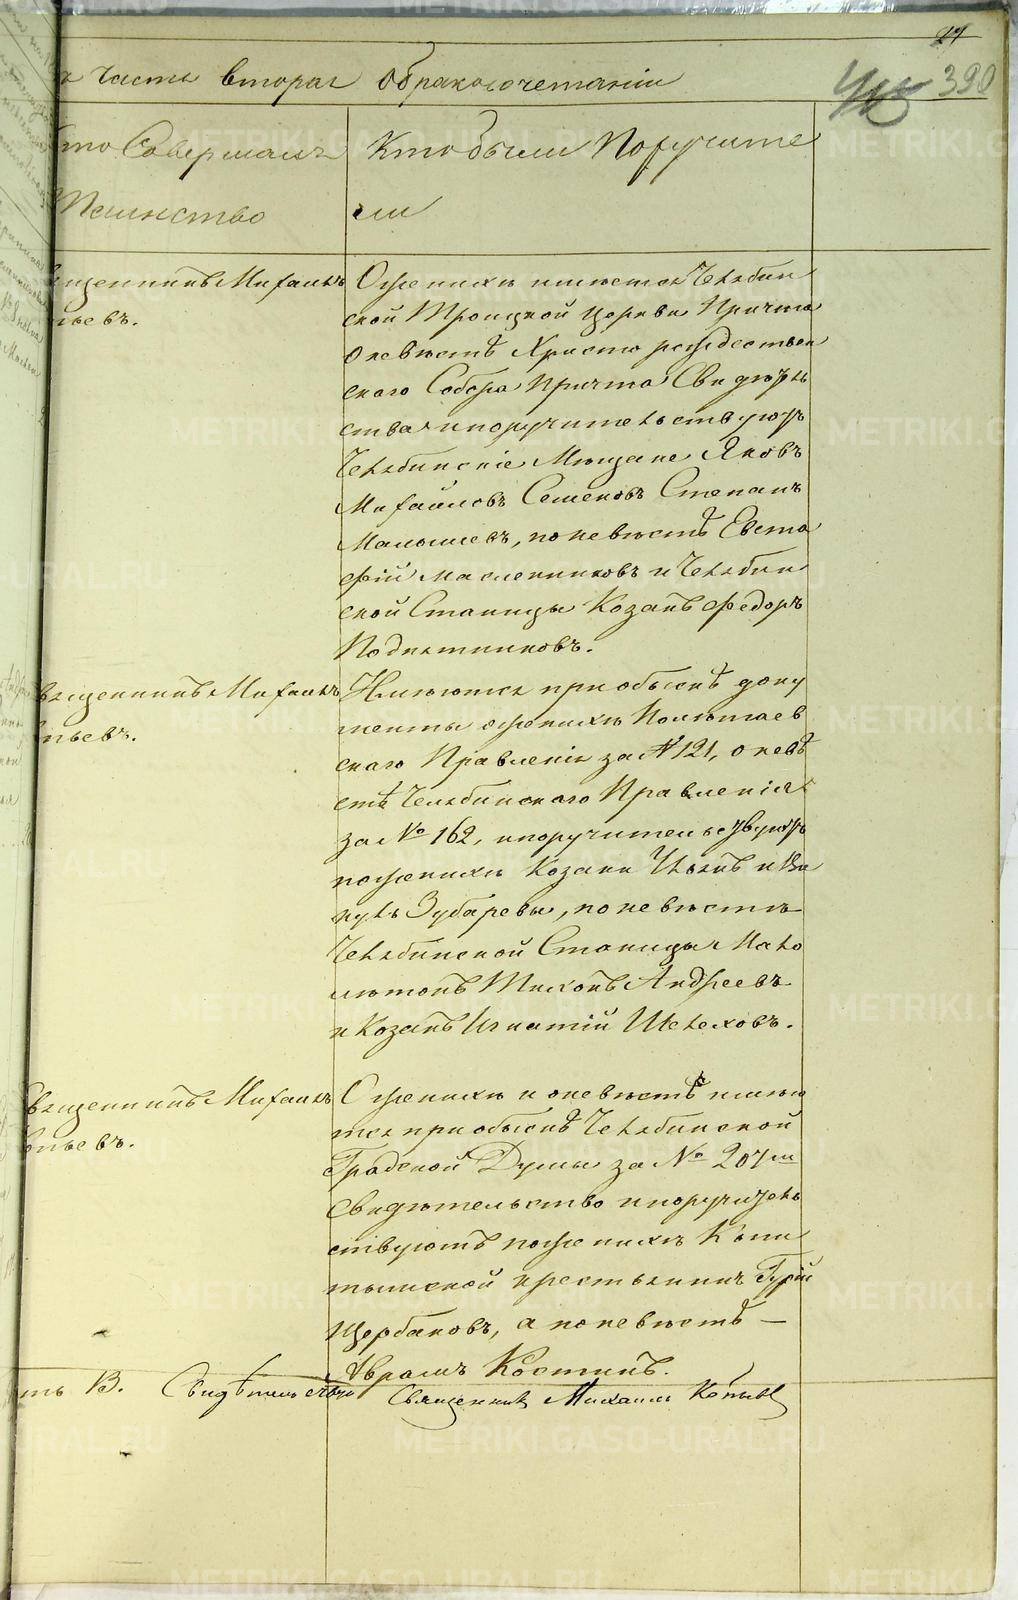 27
390
Часть вторая о бракосочетаніи
Совершалъ
Таинство
Кто были Поручите
ли
Михаилъ
ьевъ.
О женихѣ имѣется Челябин
ской Троицкой церкви Причта
о невѣстѣ Христо рождествен
скаго Собора Причта Свидѣтель
ства и поручительствуютъ
Челябинскіе Мѣщане Яковъ
Михайловъ Семеновъ Степанъ
Малышевъ, по невѣстѣ Евста
фій Масленниковъ и Челябин
ской Станицы Козакъ Федоръ
Подкатниковъ.
вященникъ Михаилъ
ьевъ.
Имѣются при обыскѣ доку
менты о женихѣ Полѣтаев
скаго Правленія за № 121, о невѣ
стѣ Челябинскаго Правленія
за № 162, и поручительствуютъ
по женихѣ Козаки и Ви
кулъ Зубаревы, по невѣстѣ
Челябинской Станицы Мало
лѣтокъ Тихонъ Андреевъ
и Козакъ Игнатій Шелеховъ.
Священникъ Михаилъ
ьевъ.
О женихѣ и о невѣстѣ имѣю
тся при обыскѣ Челябинской
Градской Думы за № 207м
Свидѣтельство и поручитель
ствуютъ по женихѣ
крестьянинъ Гурій
Щербаковъ, а по невѣстѣ —
Абрамъ Костинъ.
ть В. Свидѣтельствую
Священникъ Михаилъ Копьевъ